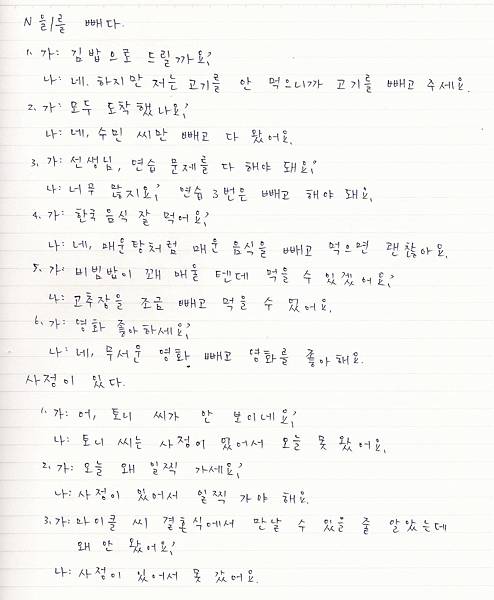 N 을/를 빼다.
1. 가: 김밥으로 드릴까요?
나: 네. 하지만 저는 고기를 안 먹으니까 고기를 빼고 주세요.
2. 가: 모두 도착했나요?
나: 네, 수민 씨만 빼고 다 왔어요.
3. 가: 선생님, 연습 문제를 다 해야 돼요?
나: 너무 많지요? 연습 3번은 빼고 해야 돼요.
4. 가: 한국 음식 잘 먹어요?
나: 네, 매운탕처럼 매운 음식을 빼고 먹으면 괜찮아요.
5. 가: 비빔밥이 꽤 매울 텐데 먹을 수 있겠어요?
나: 고추장을 조금 빼고 먹을 수 있어요.
6. 가: 영화 좋아하세요?
나: 네, 무서운 영화 빼고 영화를 좋아해요.
사정이 있다.
1. 가: 어, 토니 씨가 안 보이네요?
나: 토니 씨는 사정이 있어서 오늘 못 왔어요.
2. 가: 오늘 왜 일찍 가세요?
나: 사정이 있어서 일찍 가야 해요.
3. 가: 마이클 씨 결혼식에서 만날 수 있을 줄 알았는데
왜 안 왔어요?
나: 사정이 있어서 못 갔어요.